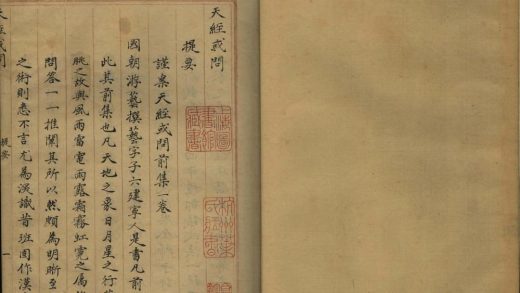 天經或問
提要
謹案天經或問前集一卷
國朝游藝撰藝字子六建寧人是書凡前
此其前集也凡天地之象日月星之行
朓之故與風雨雷電雨露霜霧虹霓之屬
問答一一推闡其所以然頗為明晰至
之術則悉不言尤為深識昔班固作漢
天經或問
提要
一
上海圖書館藏書
杭州葉氏藏書